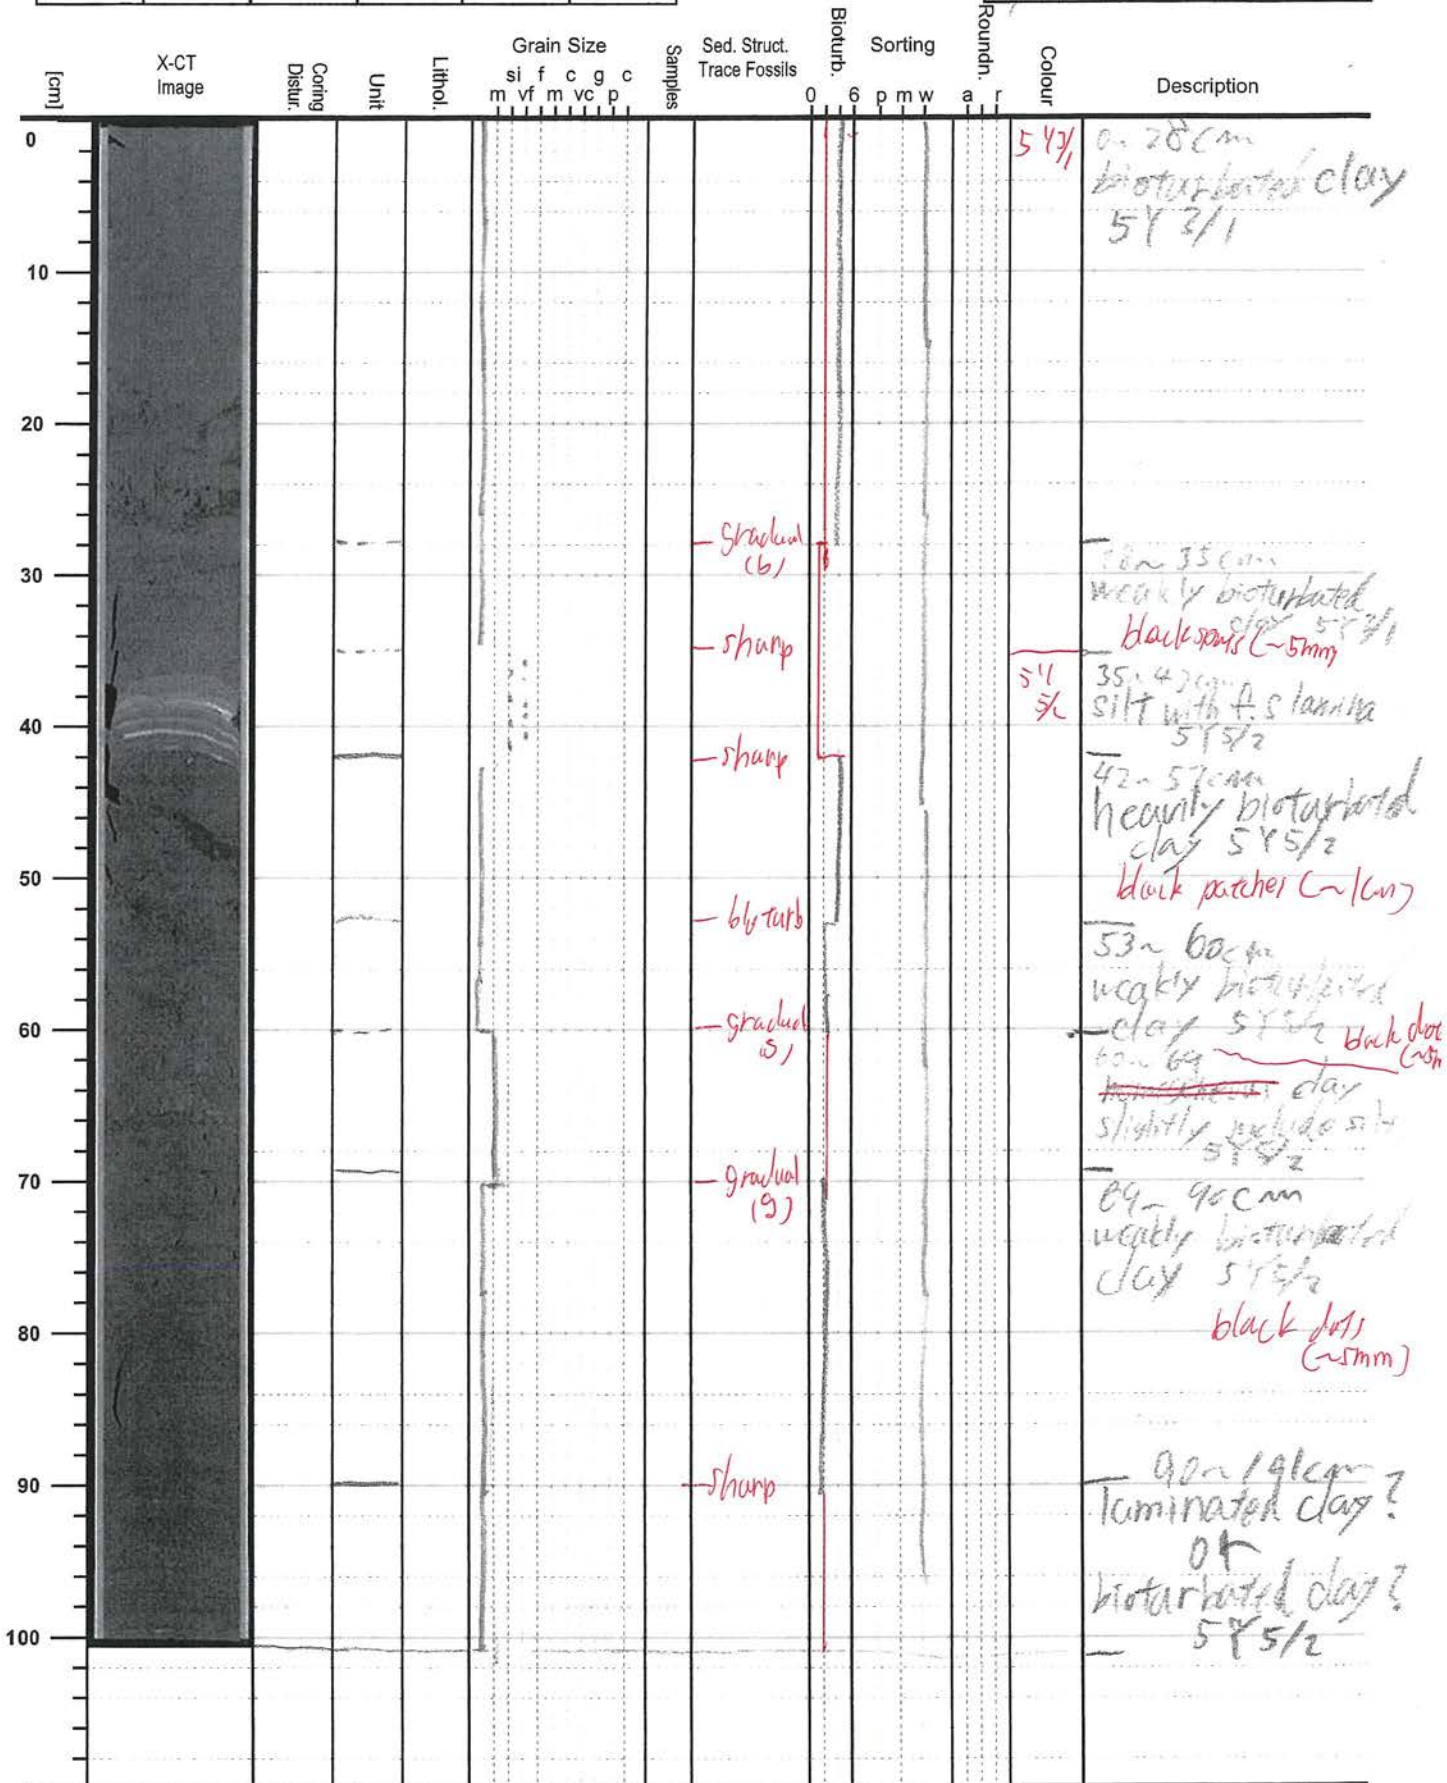 [cm]
X-CT
Image
Coring
Distur.
Unit
Lithol.
Grain Size
si f c g c
m vf m vc p
Samples
Sed. Struct.
Trace Fossils
Bioturb.
0 6
Sorting
p m w
Roundn.
a r
Colour
Description
0
10
20
30
40
50
60
70
80
90
100
gradual
(b)
sharp
sharp
gradual
gradual
(g)
sharp
5Y
5/2
0~28cm
bioturbated clay
35cm
weakly bioturbated
clay
black spots (~5mm)
silt with f.s lamina
5Y5/2
heavily bioturbated
clay 5Y5/2
black patches (~1cm)
53~60cm
weakly bioturbated
clay 5Y5/2
60~69
clay
slightly include silt
5Y5/2
69~90cm
weakly bioturbated
clay 5Y5/2
black dots
(~5mm)
laminated clay?
or
bioturbated clay?
5Y5/2